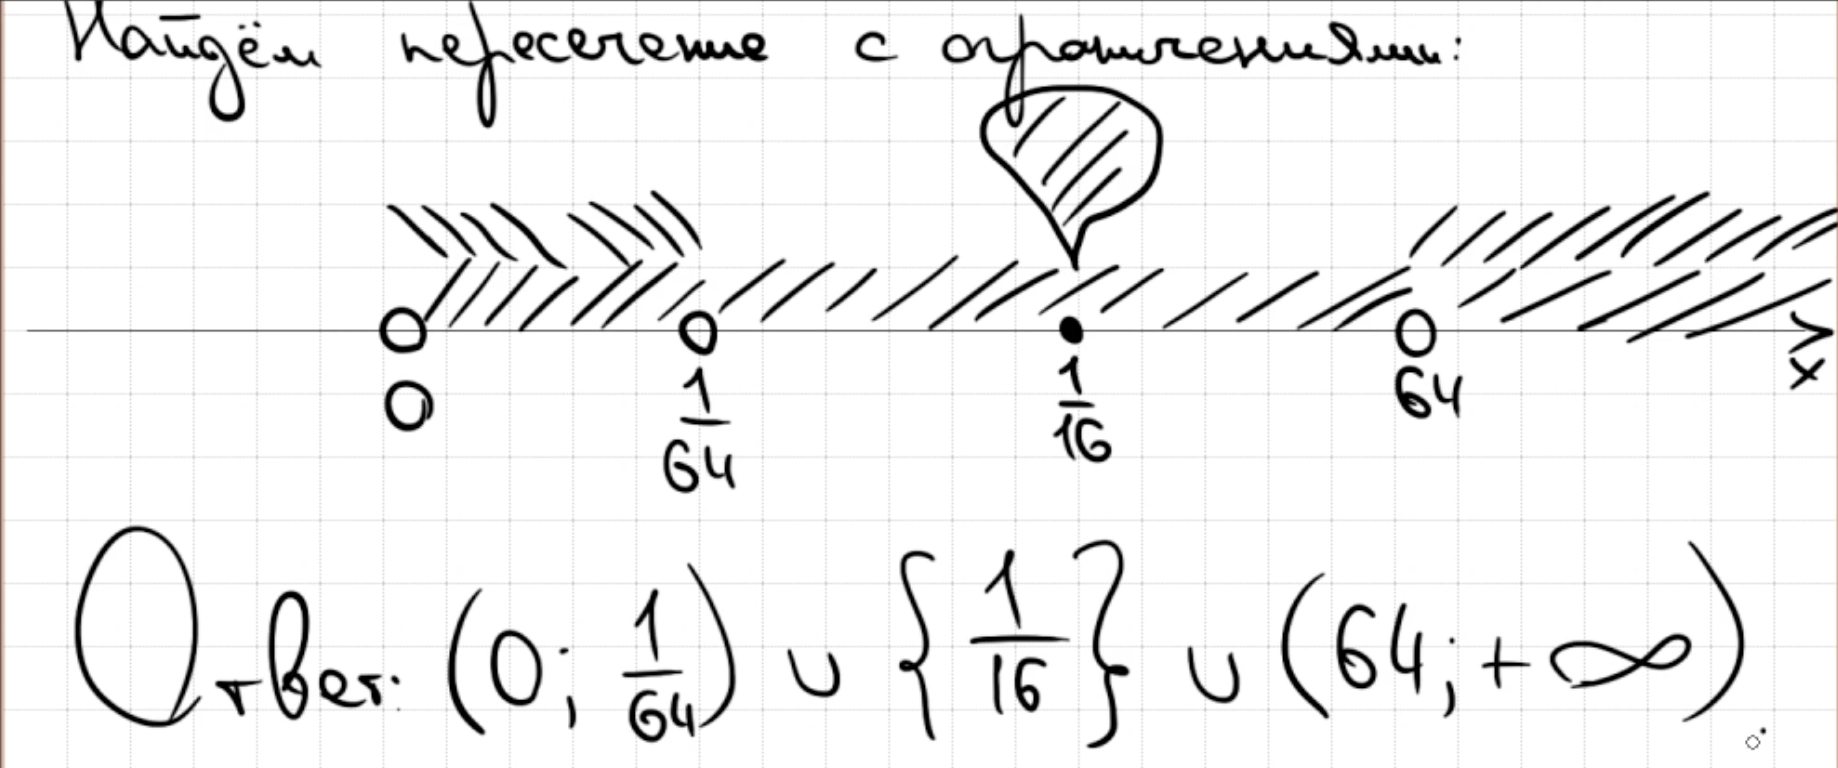 Найдём пересечение с ограничениями:
0 1/64 1/16 64 x
Ответ: (0; 1/64) ∪ {1/16} ∪ (64; +∞)